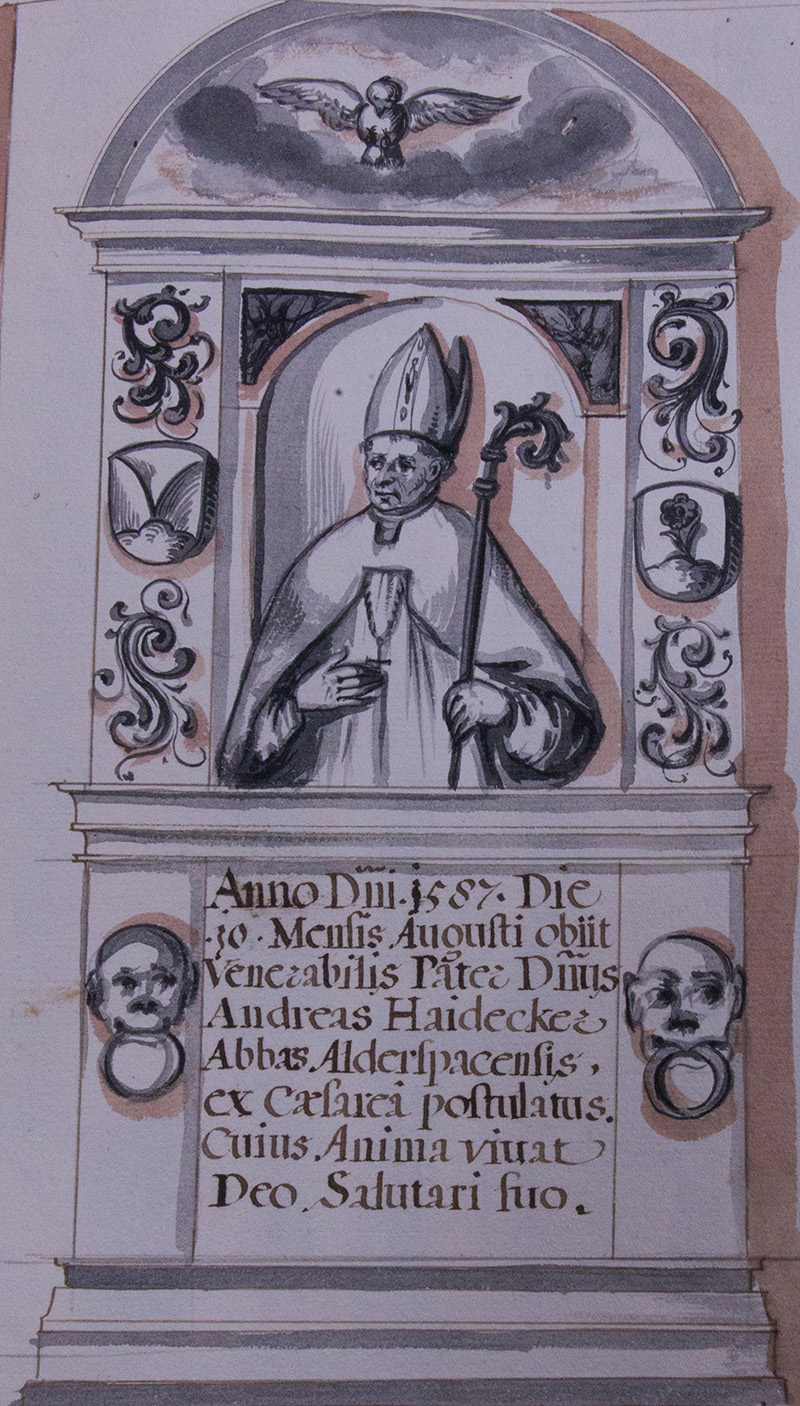 Anno Dñi. 1587. Die
.30. Mensis Augusti obiit
Venerabilis Pater Dñus
Andreas Haidecker
Abbas Alderspacensis,
ex Cæsareâ postulatus.
Cuius Anima viuat
Deo Salutari suo.